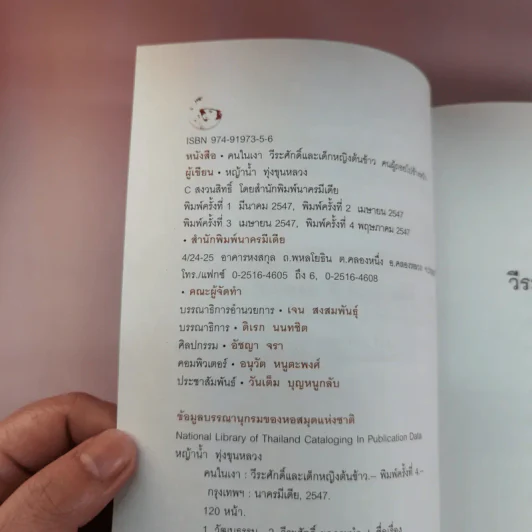 ISBN 974-91973-5-6
หนังสือ • คนในเงา วีระศักดิ์และเด็กหญิงต้นข้าว
ผู้เขียน • หญ้าน้ำ ทุ่งขุนหลวง
C สงวนสิทธิ์ โดยสำนักพิมพ์นาครมีเดีย
พิมพ์ครั้งที่ 1 มีนาคม 2547, พิมพ์ครั้งที่ 2 เมษายน 2547
พิมพ์ครั้งที่ 3 เมษายน 2547, พิมพ์ครั้งที่ 4 พฤษภาคม 2547
• สำนักพิมพ์นาครมีเดีย
4/24-25 อาคารหงสกุล ถ.พหลโยธิน ต.คลองหนึ่ง อ.คลองหลวง
โทร./แฟกซ์ 0-2516-4605 ถึง 6, 0-2516-4608
• คณะผู้จัดทำ
บรรณาธิการอำนวยการ • เจน สงสมพันธุ์
บรรณาธิการ • ดิเรก นนทชิต
ศิลปกรรม • อัชญา จรา
คอมพิวเตอร์ • อนุวัต หนูตะพงศ์
ประชาสัมพันธ์ • วันเต็ม บุญหนูกลับ
ข้อมูลบรรณานุกรมของหอสมุดแห่งชาติ
National Library of Thailand Cataloging In Publication Data
หญ้าน้ำ ทุ่งขุนหลวง
คนในเงา : วีระศักดิ์และเด็กหญิงต้นข้าว.-- พิมพ์ครั้งที่ 4.--
กรุงเทพฯ : นาครมีเดีย, 2547.
120 หน้า.
วีระ